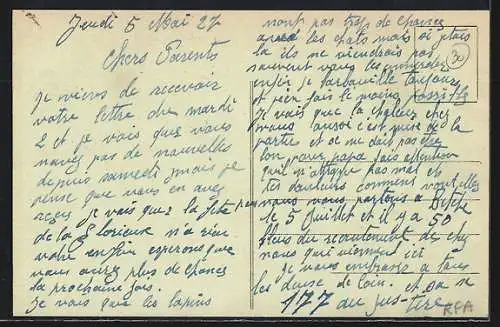 Jeudi 5 Mai 27
Chers Parents
Je viens de recevoir
votre lettre du mardi
2 et je vois que vous
navez pas de nouvelles
depuis samedi mais je
pense que vous en avez
reçu je vois que la fete
de la Glorieuse n'a rien
valu enfin esperons que
vous aurez plus de chance
la prochaine fois.
Je vois que les lapins
nont pas trop de chance
avec les chats mais si jetais
la ils ne viendrais pas
souvent vous les
enfin je farfouille toujours
et jen fais le moins possible
Je vois que la chez
vous aussi c'est mise de la
partie et ce ne doit pas etre
bon pour papa fais attention
quil n'attrape pas mal et
tes douleurs comment vont elles
nous nous partons a Bitche
le 5 Juillet et il y a 50
fleus du recrutement de chez
nous qui viennent ici
Je vous embrasse a tous
les deux de loin. et ca se
177 au jus-tere
RFA
30